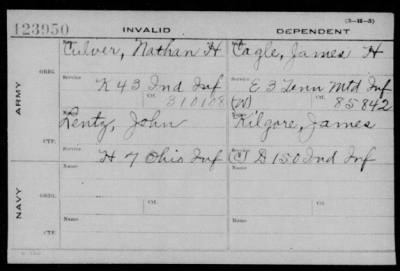 (3-H-3)
123950 INVALID DEPENDENT
Culver, Nathan H Cagle, James H
ORIG. Service Service
K 43 Ind Inf E 3 Tenn Mtd Inf
Ctf. 310108 (W) Ctf. 85842
ARMY
Name Name
Lentz, John Kilgore, James
CTF. Service Service
H 7 Ohio Inf (C) D 150 Ind Inf
Name Name
ORIG. Service Ctf. Service Ctf.
NAVY
Name Name
CTF.